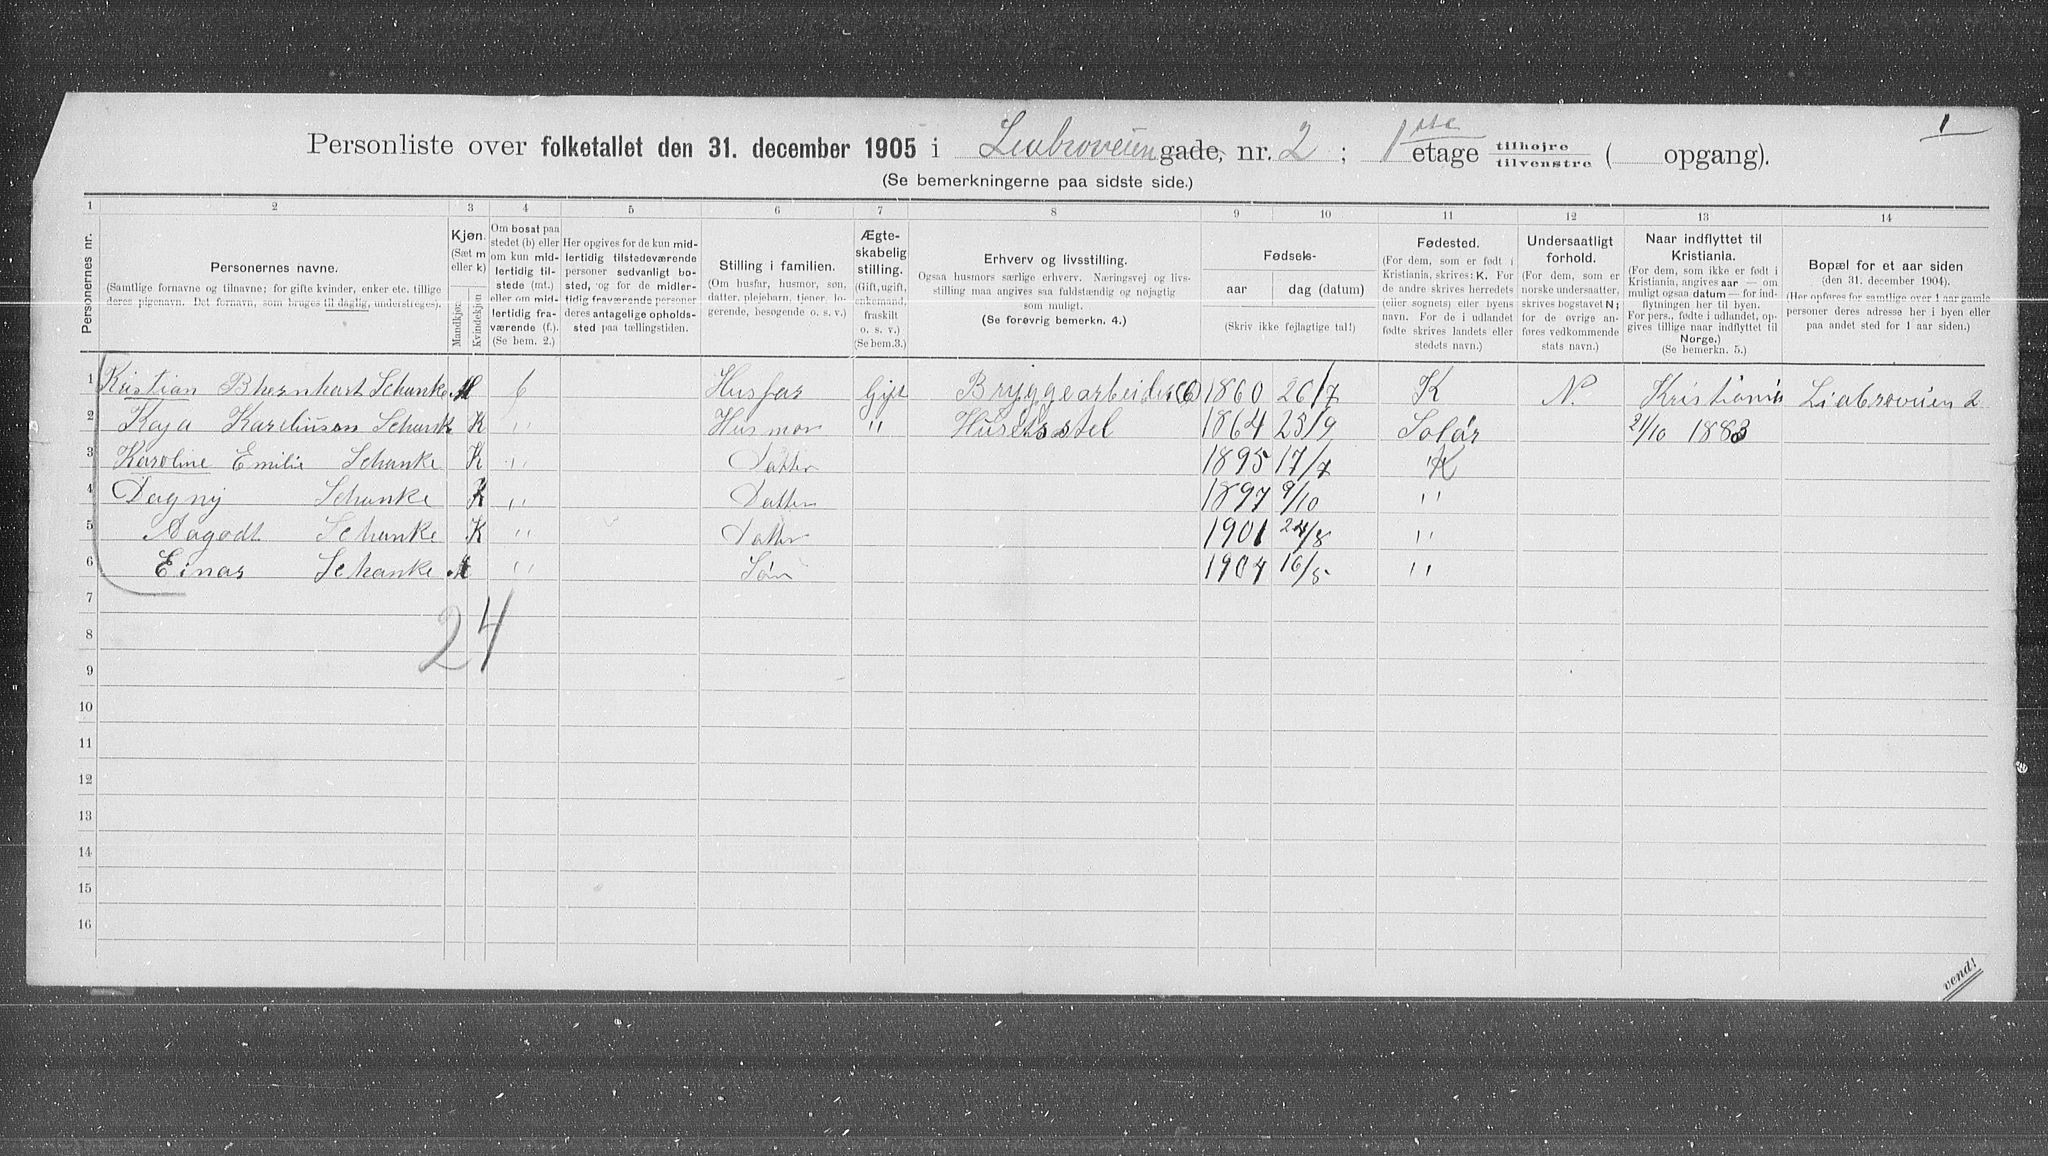 1
Personliste over folketallet den 31. december 1905 i Liabroveien gade, nr. 2 ; 1ste etage tilhøjre tilvenstre ( opgang).
(Se bemerkningerne paa sidste side.)
1 2 3 4 5 6 7 8 9 10 11 12 13 14
Personernes nr.
Personernes navne.
(Samtlige fornavne og tilnavne; for gifte kvinder, enker etc. tillige deres pigenavn. Det fornavn, som bruges til daglig, understreges).
Kjøn.
(Sæt m eller k)
Mandkjøn.
Kvindekjøn
Om bosat paa stedet (b) eller om kun midlertidig tilstede (mt.) eller om midlertidig fraværende (f.).
(Se bem. 2.)
Her opgives for de kun midlertidig tilstedeværende personer sedvanligt bosted, og for de midlertidig fraværende personer deres antagelige opholdssted paa tællingstiden.
Stilling i familien.
(Om husfar, husmor, søn, datter, plejebarn, tjener, logerende, besøgende o. s. v.)
Ægteskabelig stilling.
(Gift, ugift, enkemand, fraskilt o. s. v.)
(Se bem.3.)
Erhverv og livsstilling.
Ogsaa husmors særlige erhverv. Næringsvej og livsstilling maa angives saa fuldstændig og nøjagtig som muligt.
(Se forøvrig bemerkn. 4.)
Fødsels-
aar dag (datum)
(Skriv ikke fejlagtige tal!)
Fødested.
(For dem, som er født i Kristiania, skrives: K. For de andre skrives herredets (eller sognets) eller byens navn. For de i udlandet fødte skrives landets eller stedets navn.)
Undersaatligt forhold.
(For dem, som er norske undersaatter, skrives bogstavet N; for de øvrige anføres vedkommende stats navn.)
Naar indflyttet til Kristiania.
(For dem, som ikke er født i Kristiania, angives aar — om muligt ogsaa datum — for indflytningen her til byen. For pers., fødte i udlandet, opgives tillige naar indflyttet til Norge.)
(Se bemerkn. 5.)
Bopæl for et aar siden
(den 31. december 1904).
(Her opføres for samtlige over 1 aar gamle personer deres adresse her i byen eller paa andet sted for 1 aar siden.)
1 Kristian Bhernhart Schanke M b Husfar Gift Bryggearbeider (6) 1860 26/7 K N. Kristiania Liabroveien 2
2 Kaja Schank K " Husmor " Husets stel 1864 23/9 Solør 21/10 1883
3 Karoline Emilie Schanke K " Datter 1895 17/7 K
4 Dagny Schanke K " Datter 1897 9/10 "
5 Aagodt Schanke K " Datter 1901 24/8 "
6 Einar Schanke M " Søn 1904 16/5 "
7
24
8
9
10
11
12
13
14
15
16
vend!